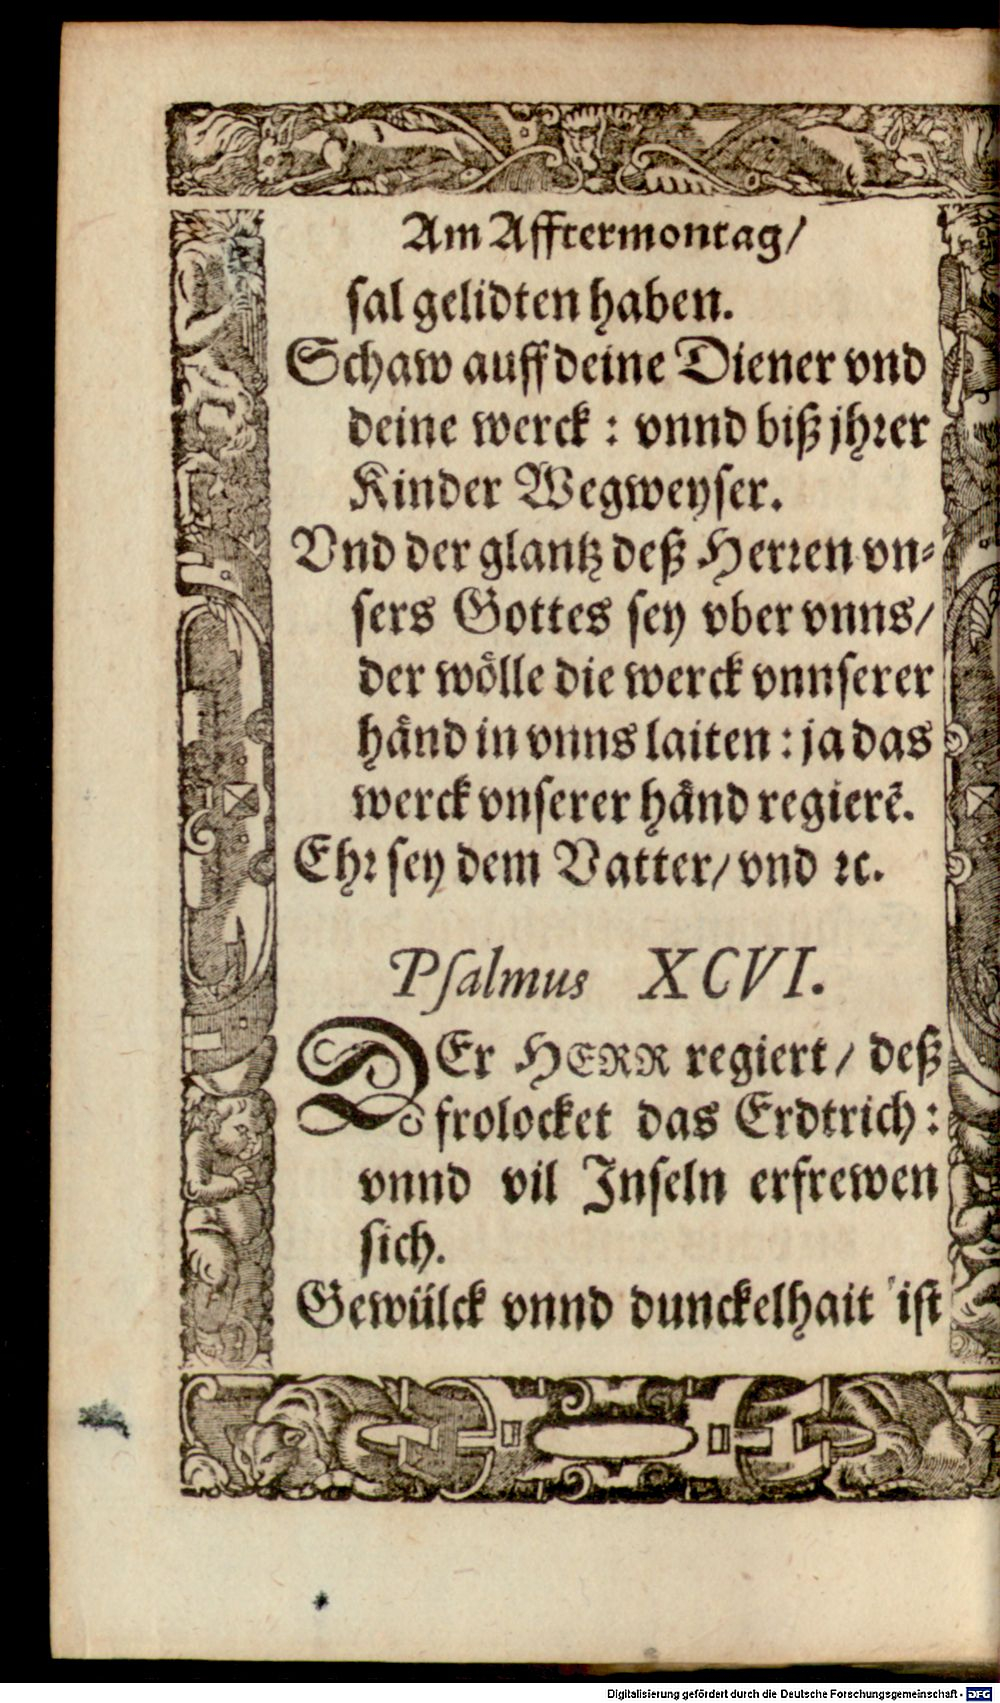 Am Afftermontag/
sal gelidten haben.
Schaw auff deine Diener vnd
deine werck : vnnd biß jhrer
Kinder Wegweyser.
Vnd der glantz deß Herren vn-
sers Gottes sey vber vnns/
der wölle die werck vnnserer
händ in vnns laiten : ja das
werck vnserer händ regierē.
Ehr sey dem Vatter/ vnd ꝛc.
Psalmus XCVI.
DEr HERR regiert/ deß
frolocket das Erdtrich :
vnnd vil Inseln erfrewen
sich.
Gewülck vnnd dunckelhait ist
Digitalisierung gefördert durch die Deutsche Forschungsgemeinschaft - DFG